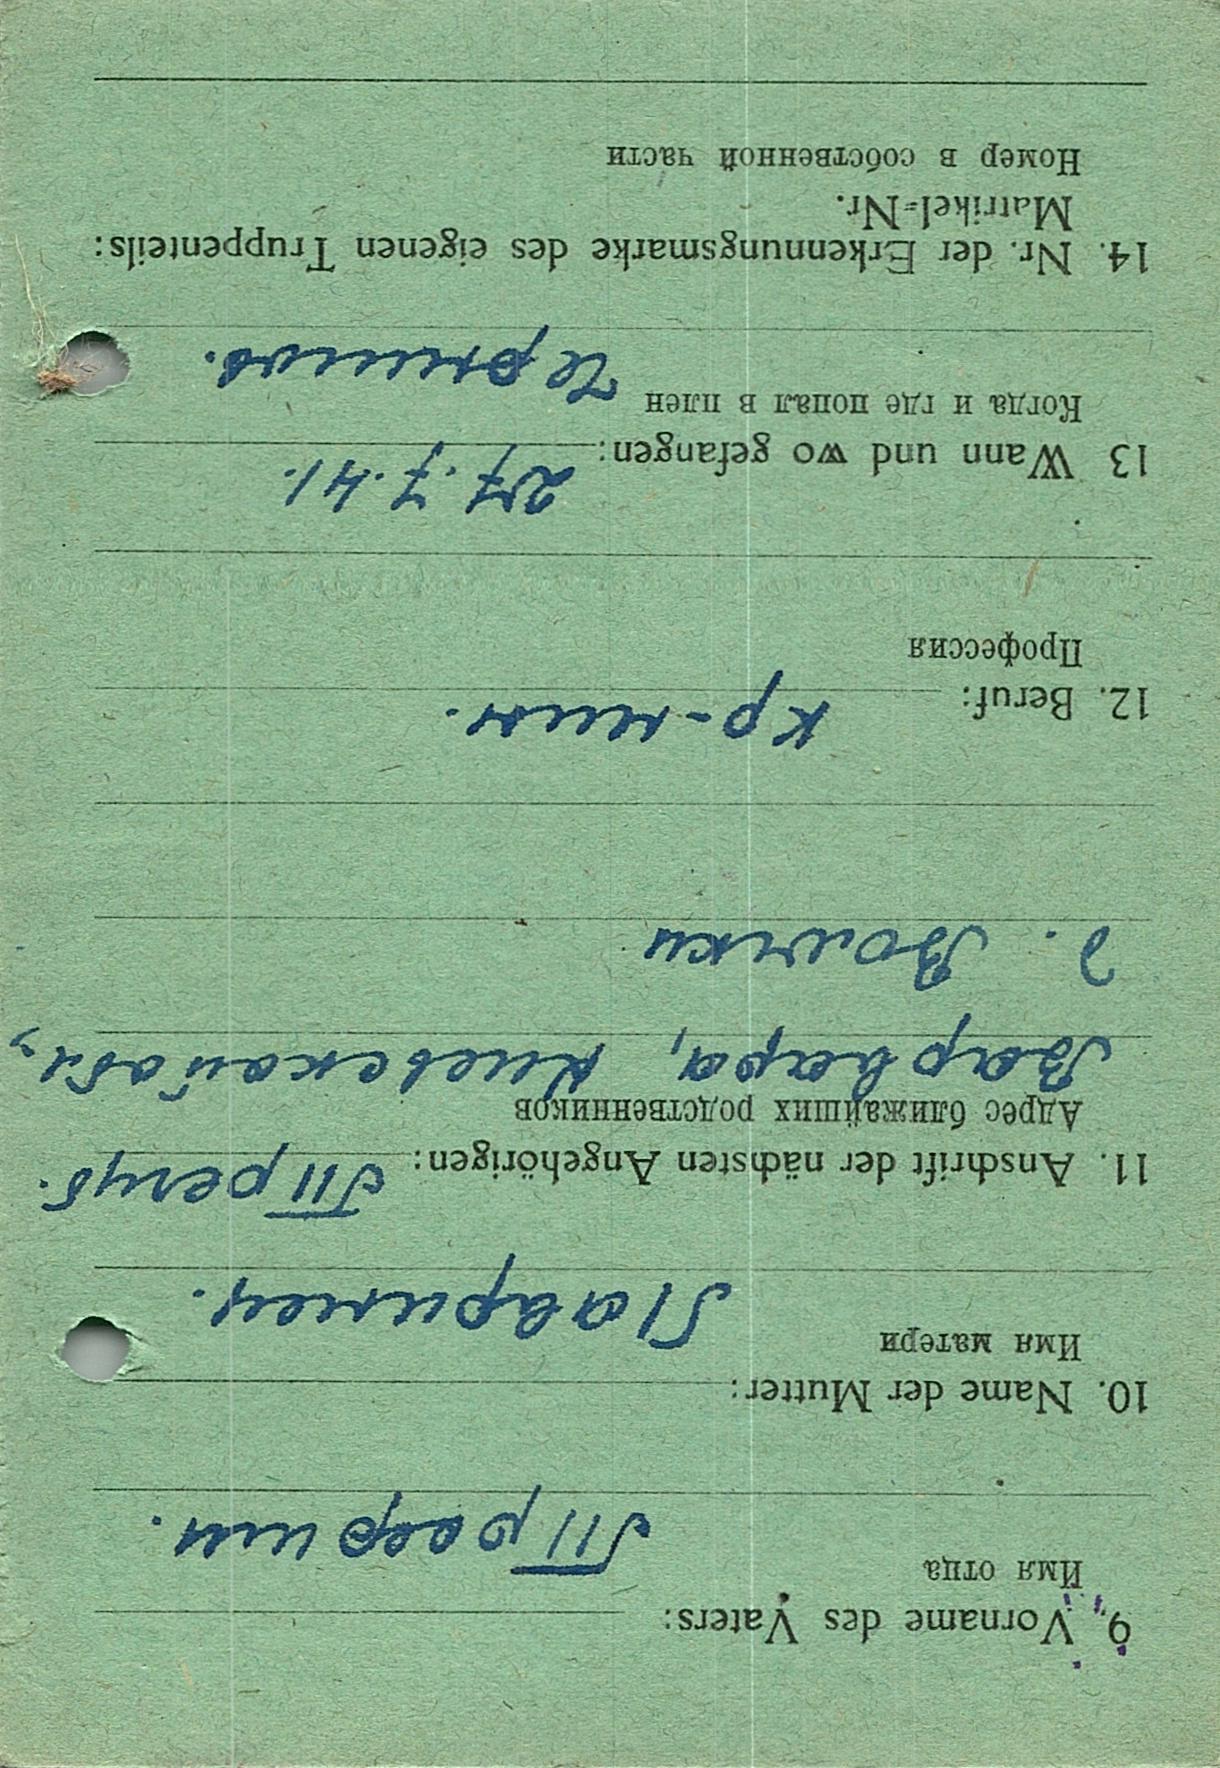 9. Vorname des Vaters:
Имя отца
Трофим.
10. Name der Mutter:
Имя матери
11. Anschrift der nächsten Angehörigen:
Адрес ближайших родственников
Варвара, Киевская обл.,
д. Волчки
12. Beruf: кр-нин.
Профессия
13 Wann und wo gefangen: 27.7.41.
Когда и где попал в плен
14. Nr. der Erkennungsmarke des eigenen Truppenteils:
Matrikel=Nr.
Номер в собственной части